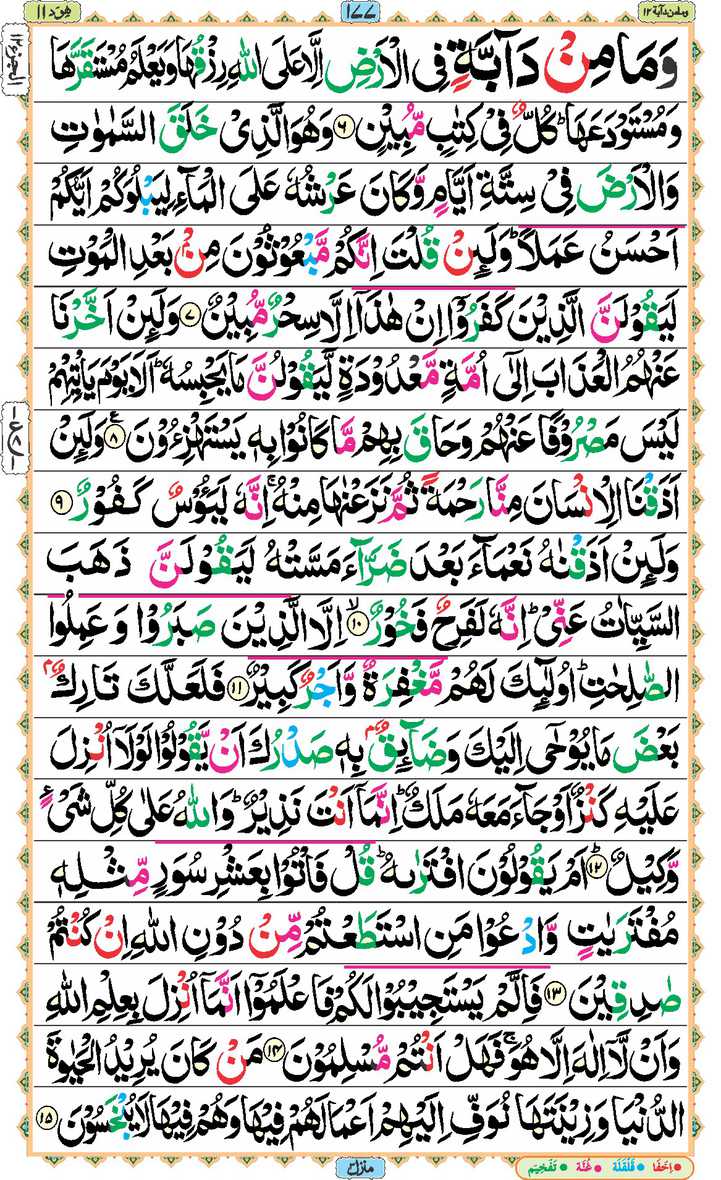 ومامن دآبة ١٢
١٧٧
هود ١١
وَمَا مِنْ دَآبَّةٍ فِى الْاَرْضِ اِلَّا عَلَى اللّٰهِ رِزْقُهَا وَيَعْلَمُ مُسْتَقَرَّهَا
وَمُسْتَوْدَعَهَا ؕ كُلٌّ فِىْ كِتٰبٍ مُّبِيْنٍ ۶ وَهُوَ الَّذِىْ خَلَقَ السَّمٰوٰتِ
وَالْاَرْضَ فِىْ سِتَّةِ اَيَّامٍ وَّكَانَ عَرْشُهٗ عَلَى الْمَآءِ لِيَبْلُوَكُمْ اَيُّكُمْ
اَحْسَنُ عَمَلًا ؕ وَلَئِنْ قُلْتَ اِنَّكُمْ مَّبْعُوْثُوْنَ مِنْۢ بَعْدِ الْمَوْتِ
لَيَقُوْلَنَّ الَّذِيْنَ كَفَرُوْۤا اِنْ هٰذَاۤ اِلَّا سِحْرٌ مُّبِيْنٌ ۷ وَلَئِنْ اَخَّرْنَا
عَنْهُمُ الْعَذَابَ اِلٰٓى اُمَّةٍ مَّعْدُوْدَةٍ لَّيَقُوْلُنَّ مَا يَحْبِسُهٗ ؕ اَلَا يَوْمَ يَاْتِيْهِمْ
لَيْسَ مَصْرُوْفًا عَنْهُمْ وَحَاقَ بِهِمْ مَّا كَانُوْا بِهٖ يَسْتَهْزِءُوْنَ ۸ وَلَئِنْ
اَذَقْنَا الْاِنْسَانَ مِنَّا رَحْمَةً ثُمَّ نَزَعْنٰهَا مِنْهُ ۚ اِنَّهٗ لَيَئُوْسٌ كَفُوْرٌ ۹
وَلَئِنْ اَذَقْنٰهُ نَعْمَآءَ بَعْدَ ضَرَّآءَ مَسَّتْهُ لَيَقُوْلَنَّ ذَهَبَ
السَّيِّاٰتُ عَنِّىْ ؕ اِنَّهٗ لَفَرِحٌ فَخُوْرٌ ۱۰ اِلَّا الَّذِيْنَ صَبَرُوْا وَعَمِلُوا
الصّٰلِحٰتِ ؕ اُولٰٓئِكَ لَهُمْ مَّغْفِرَةٌ وَّاَجْرٌ كَبِيْرٌ ۱۱ فَلَعَلَّكَ تَارِكٌۢ
بَعْضَ مَا يُوْحٰٓى اِلَيْكَ وَضَآئِقٌۢ بِهٖ صَدْرُكَ اَنْ يَّقُوْلُوْا لَوْلَاۤ اُنْزِلَ
عَلَيْهِ كَنْزٌ اَوْ جَآءَ مَعَهٗ مَلَكٌ ؕ اِنَّمَاۤ اَنْتَ نَذِيْرٌ ؕ وَاللّٰهُ عَلٰى كُلِّ شَىْءٍ
وَّكِيْلٌ ۱۲ اَمْ يَقُوْلُوْنَ افْتَرٰىهُ ؕ قُلْ فَاْتُوْا بِعَشْرِ سُوَرٍ مِّثْلِهٖ
مُفْتَرَيٰتٍ وَّادْعُوْا مَنِ اسْتَطَعْتُمْ مِّنْ دُوْنِ اللّٰهِ اِنْ كُنْتُمْ
صٰدِقِيْنَ ۱۳ فَاِلَّمْ يَسْتَجِيْبُوْا لَكُمْ فَاعْلَمُوْۤا اَنَّمَاۤ اُنْزِلَ بِعِلْمِ اللّٰهِ
وَاَنْ لَّاۤ اِلٰهَ اِلَّا هُوَ ۚ فَهَلْ اَنْتُمْ مُّسْلِمُوْنَ ۱۴ مَنْ كَانَ يُرِيْدُ الْحَيٰوةَ
الدُّنْيَا وَزِيْنَتَهَا نُوَفِّ اِلَيْهِمْ اَعْمَالَهُمْ فِيْهَا وَهُمْ فِيْهَا لَا يُبْخَسُوْنَ ۱۵
منزل ۳
اِخفَا • قَلْقَلَة • غُنَّة • تَفْخِيْم